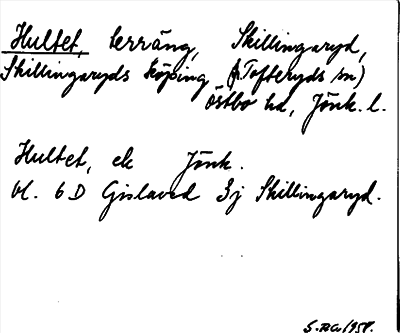 Hultet, terräng, Skillingaryd,
Skillingaryds köping (Tofteryds sn)
Östbo hd, Jönk. l.
Hultet, ek Jönk.
bl. 6 D Gislaved 3j Skillingaryd.
1958.